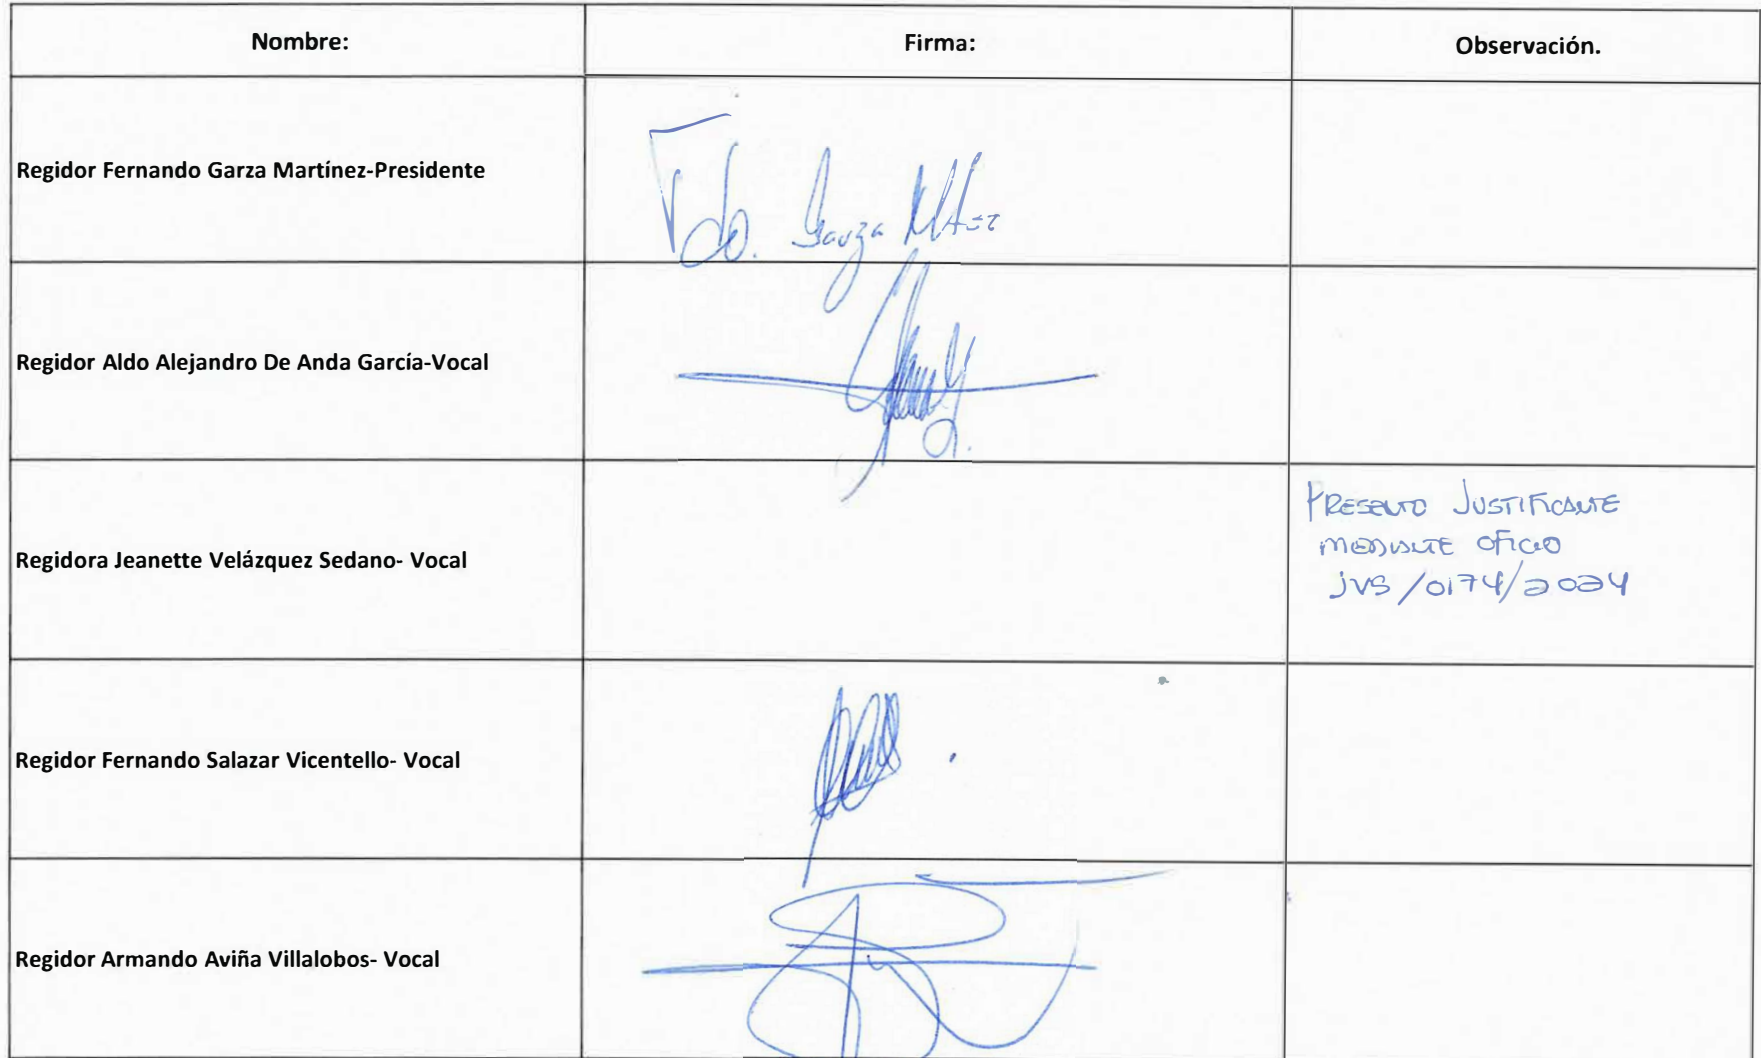 Nombre:
Firma:
Observación.
Regidor Fernando Garza Martínez-Presidente
Fdo. Garza Mtez
Regidor Aldo Alejandro De Anda García-Vocal
Regidora Jeanette Velázquez Sedano- Vocal
PRESENTO JUSTIFICANTE
MEDIANTE OFICIO
JVS/0174/2024
Regidor Fernando Salazar Vicentello- Vocal
Regidor Armando Aviña Villalobos- Vocal